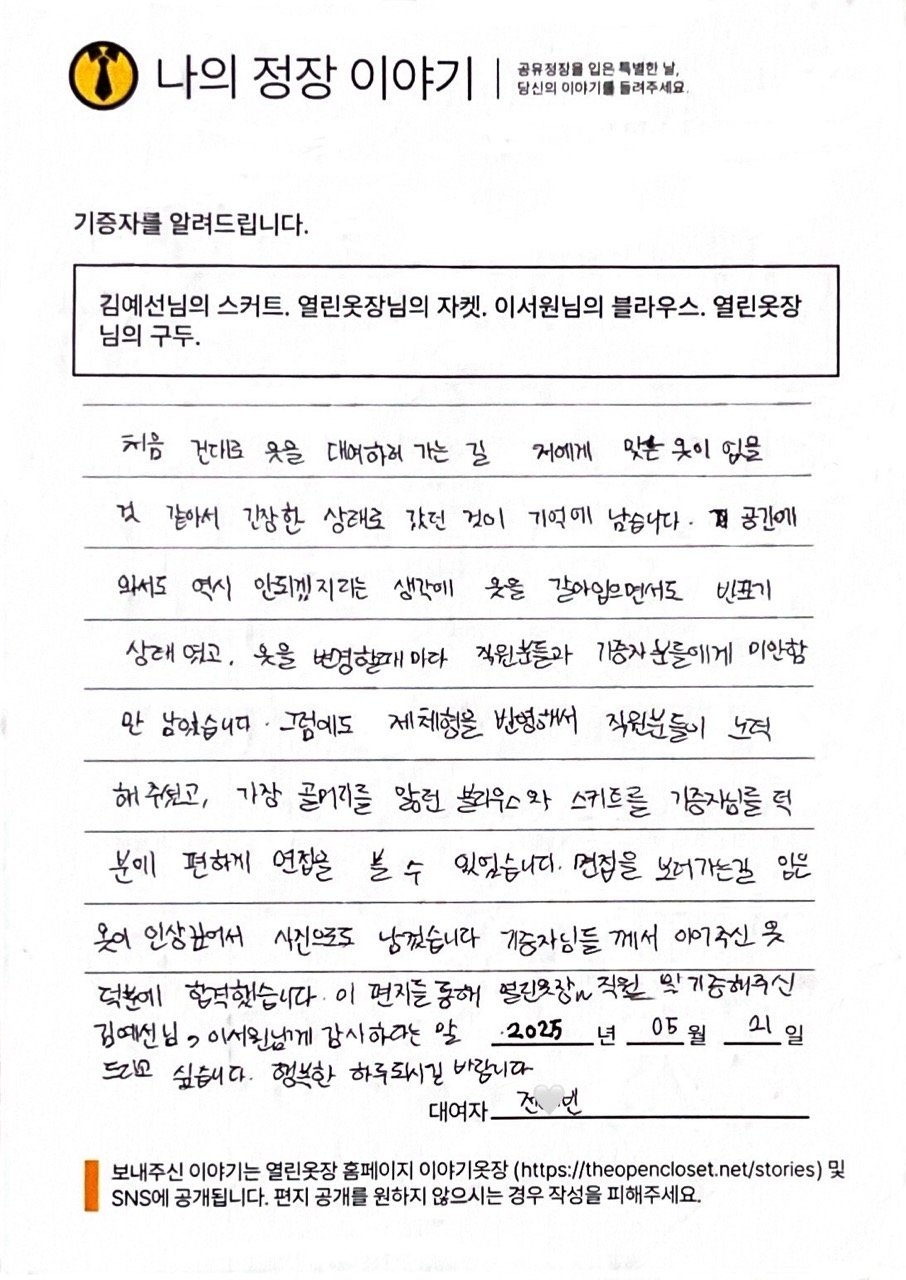 나의 정장 이야기
공유정장을 입은 특별한 날,
당신의 이야기를 들려주세요.
기증자를 알려드립니다.
김예선님의 스커트. 열린옷장님의 자켓. 이서원님의 블라우스. 열린옷장
님의 구두.
처음 건대로 옷을 대여하러 가는 길 저에게 맞는 옷이 없을
것 같아서 긴장한 상태로 갔던 것이 기억에 남습니다. 공간에
와서도 역시 안되겠지라는 생각에 옷을 갈아입으면서도 반포기
상태 였고, 옷을 변경할때마다 직원분들과 기증자분들에게 미안함
만 남았습니다. 그럼에도 제 체형을 반영해서 직원분들이 노력
해 주셨고, 가장 골머리를 앓던 블라우스와 스커트를 기증자님들 덕
분에 편하게 면접을 볼 수 있었습니다. 면접을 보러가는길 입은
옷이 인상깊어서 사진으로도 남겼습니다 기증자님들 께서 이어주신 옷
덕분에 합격했습니다. 이 편지를 통해 열린옷장 직원 및 기증해주신
김예선님, 이서원님께 감사하다는 말 2025 년 05 월 21 일
드리고 싶습니다. 행복한 하루되시길 바랍니다
대여자 전 빈
보내주신 이야기는 열린옷장 홈페이지 이야기옷장 (https://theopencloset.net/stories) 및
SNS에 공개됩니다. 편지 공개를 원하지 않으시는 경우 작성을 피해주세요.